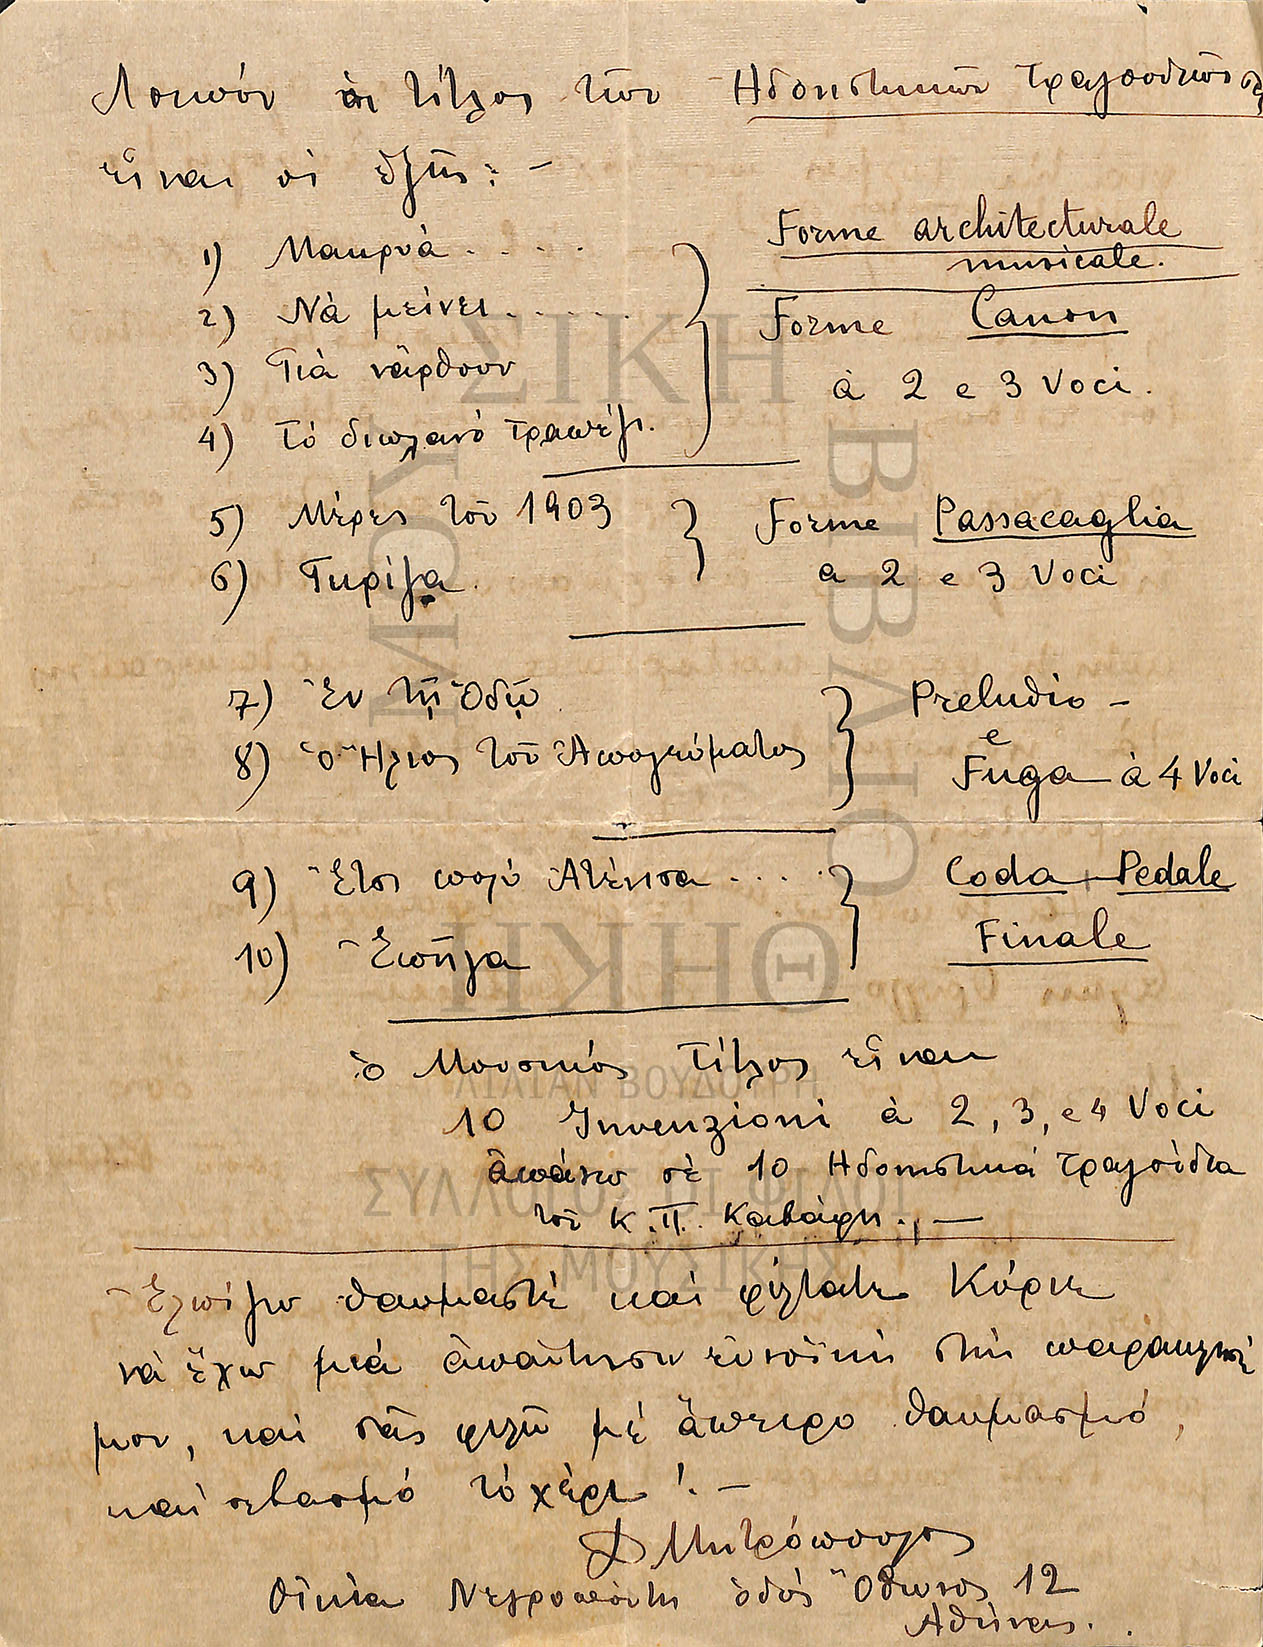 Λοιπόν οἱ τίτλος τῶν Ηδονιστικῶν τραγουδιῶν σας
εἶναι οἱ ἑξῆς: –
1) Μακρυά . . . .
2) Νὰ μείνει . . . . .
3) Γιὰ νἄρθουν
4) Τό διπλανό τραπέζι.
Forme architecturale
musicale.
Forme Canon
à 2 e 3 Voci.
5) Μέρες τοῦ 1903
6) Γκρίζα.
Forme Passacaglia
a 2 e 3 Voci
7) Ἐν τῇ Ὁδῷ
8) Ὁ Ἥλιος τοῦ Ἀπογεύματος
Preludio –
e
Fuga à 4 Voci
9) Ἔτσι πολύ Ατένισα . . . .
10) Ἐπῆγα
Coda Pedale
Finale
ὁ Μουσικός Τίτλος εἶναι
10 Invenzioni à 2, 3, e 4 Voci
ἀπάνω σὲ 10 Ηδονιστικά τραγούδια
τοῦ Κ. Π. Καβάφη. –
Ἐλπίζω θαυμαστέ καί φίλτατε Κύριε
νὰ ἔχω μιά ἀπαίτησιν εὐνοϊκή στήν παράκλησί
μου, καί σᾶς φιλῶ μέ ἄπειρο θαυμασμό,
καί σεβασμό τό χέρι! –
Δ Μητρόπουλος
Οἰκία Νεγροπόντη ὁδός Ὄθωνος 12
Αθήναι.
ΜΟΥΣΙΚΗ ΒΙΒΛΙΟΘΗΚΗ
ΛΙΛΙΑΝ ΒΟΥΔΟΥΡΗ
ΣΥΛΛΟΓΟΣ ΟΙ ΦΙΛΟΙ
ΤΗΣ ΜΟΥΣΙΚΗΣ